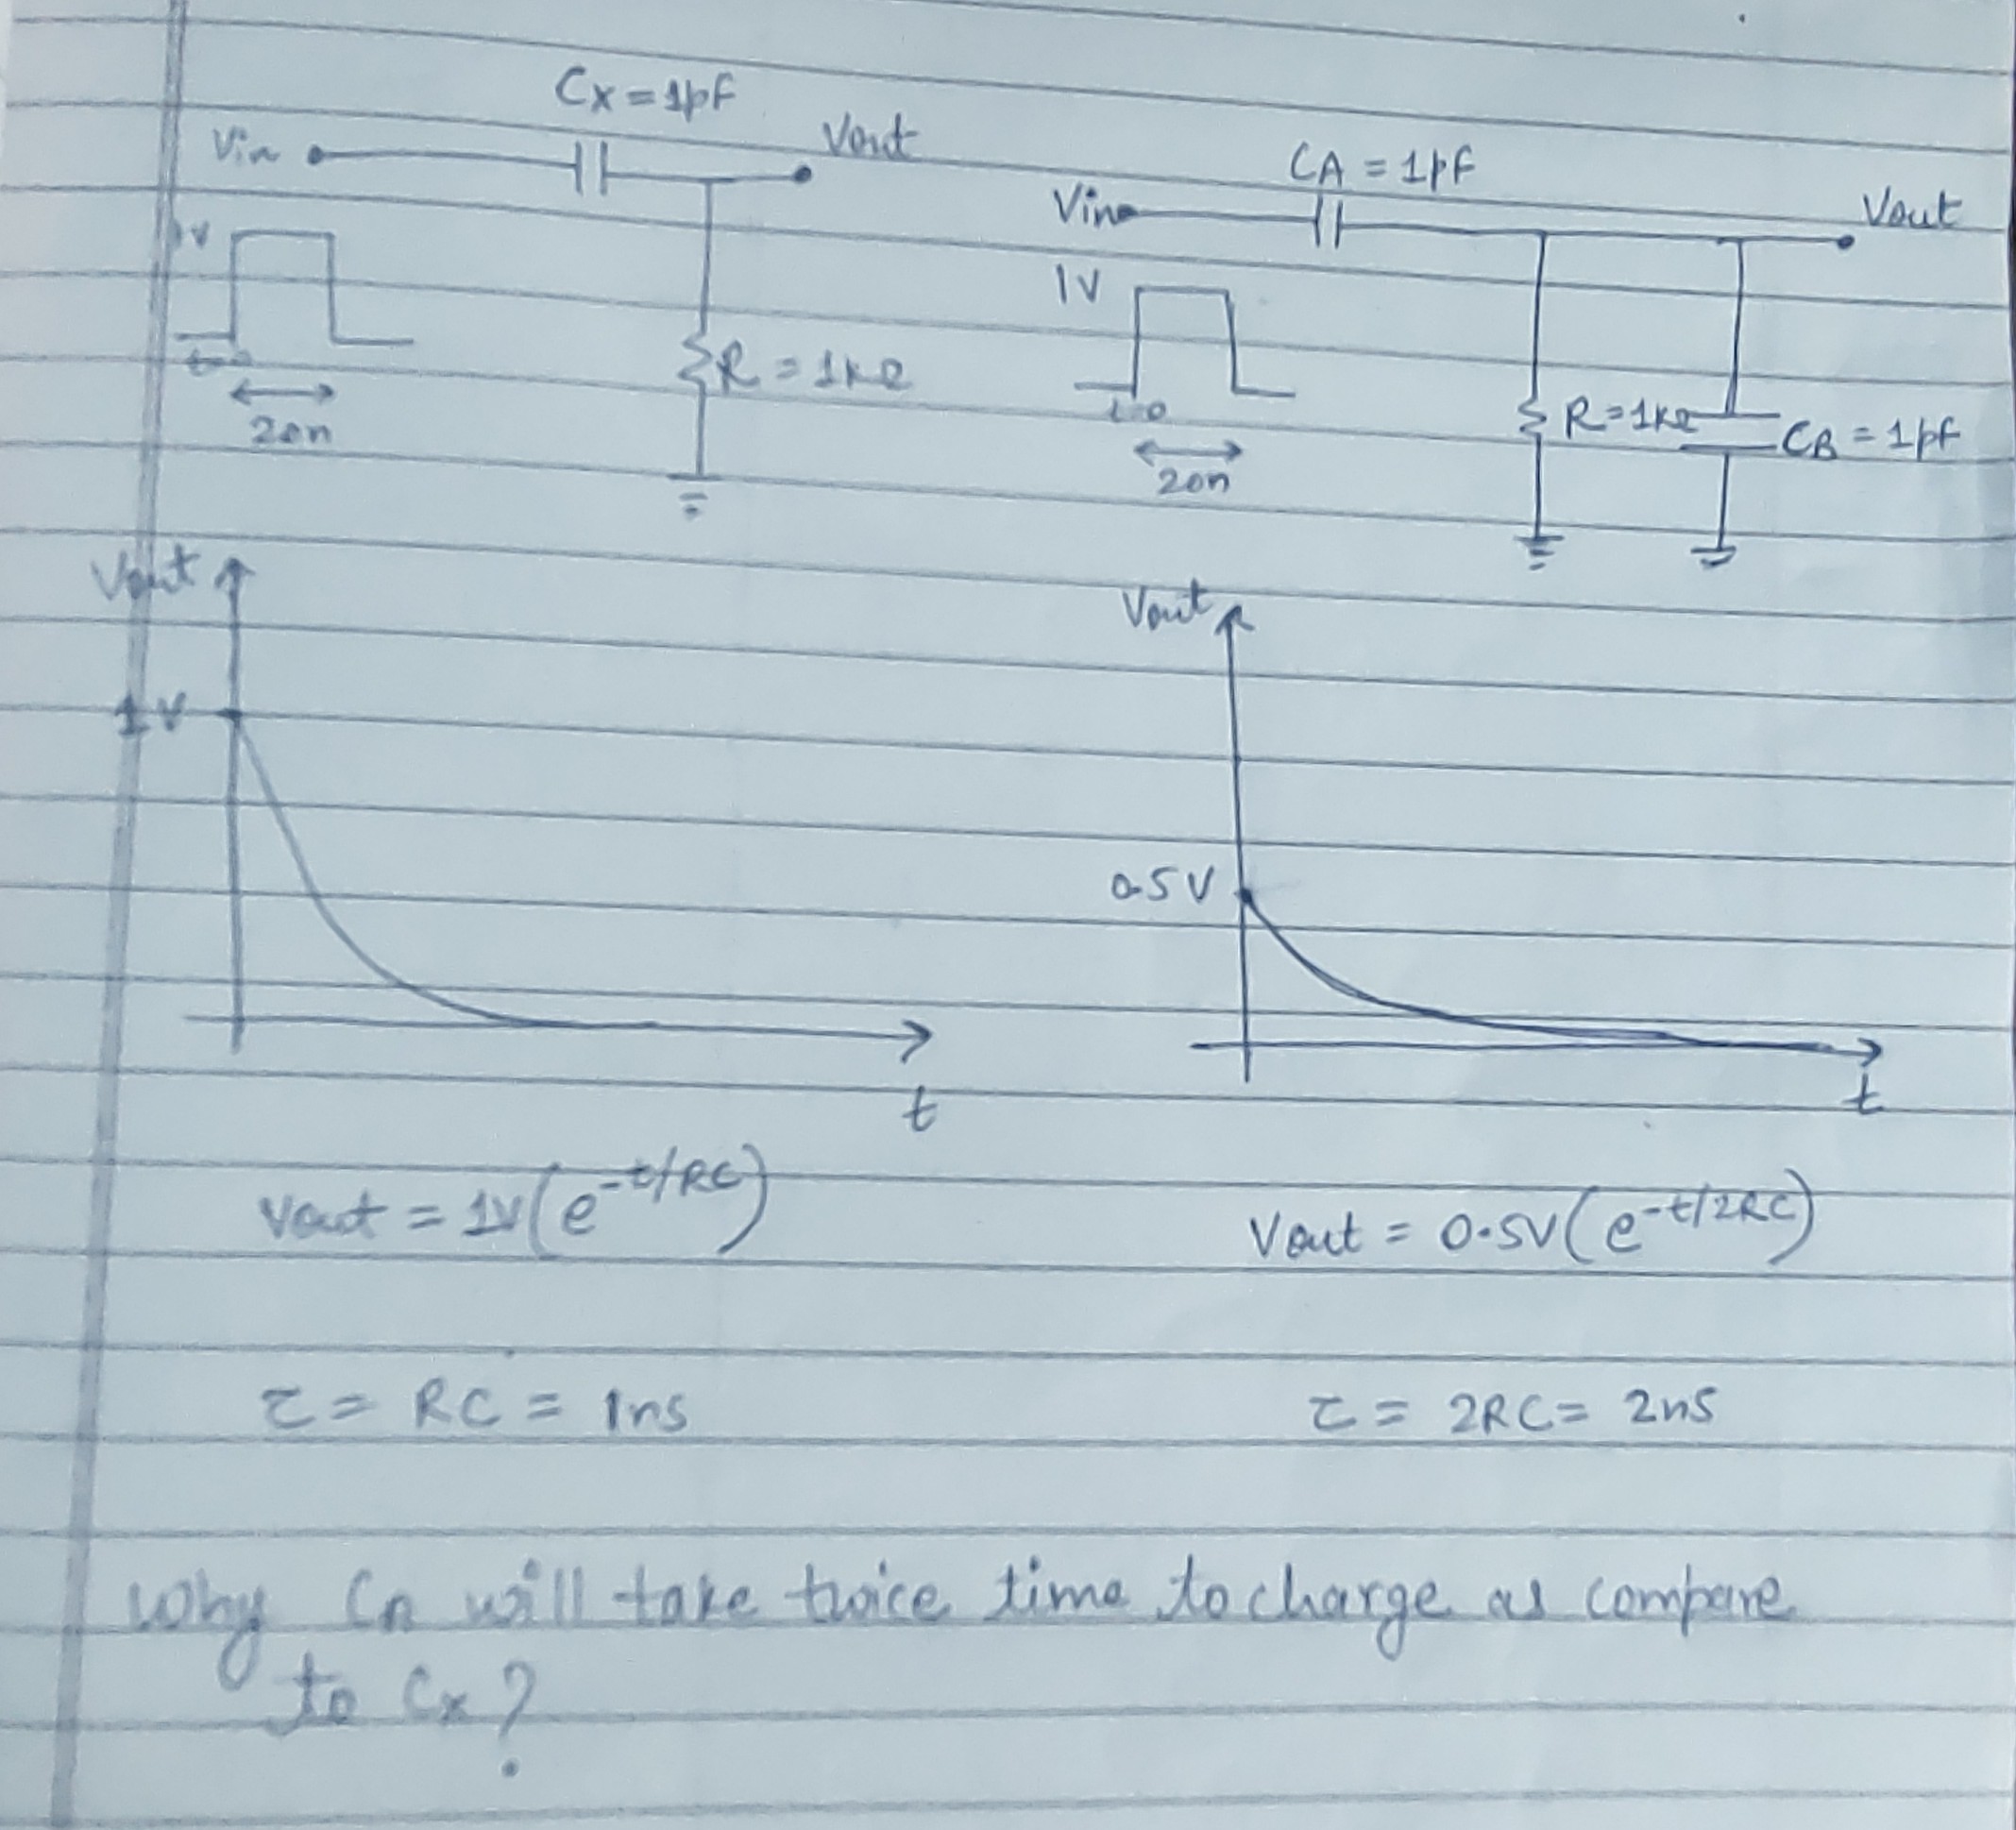 Cx = 1pF
Vin
Vout
1V
t=0
20n
R = 1kΩ
CA = 1pF
Vin
Vout
1V
t=0
20n
R = 1kΩ
CB = 1pF
Vout
1V
t
Vout
0.5V
t
Vout = 1V(e^-t/RC)
Vout = 0.5V(e^-t/2RC)
τ = RC = 1ns
τ = 2RC = 2nS
Why CA will take twice time to charge as compare
to Cx?